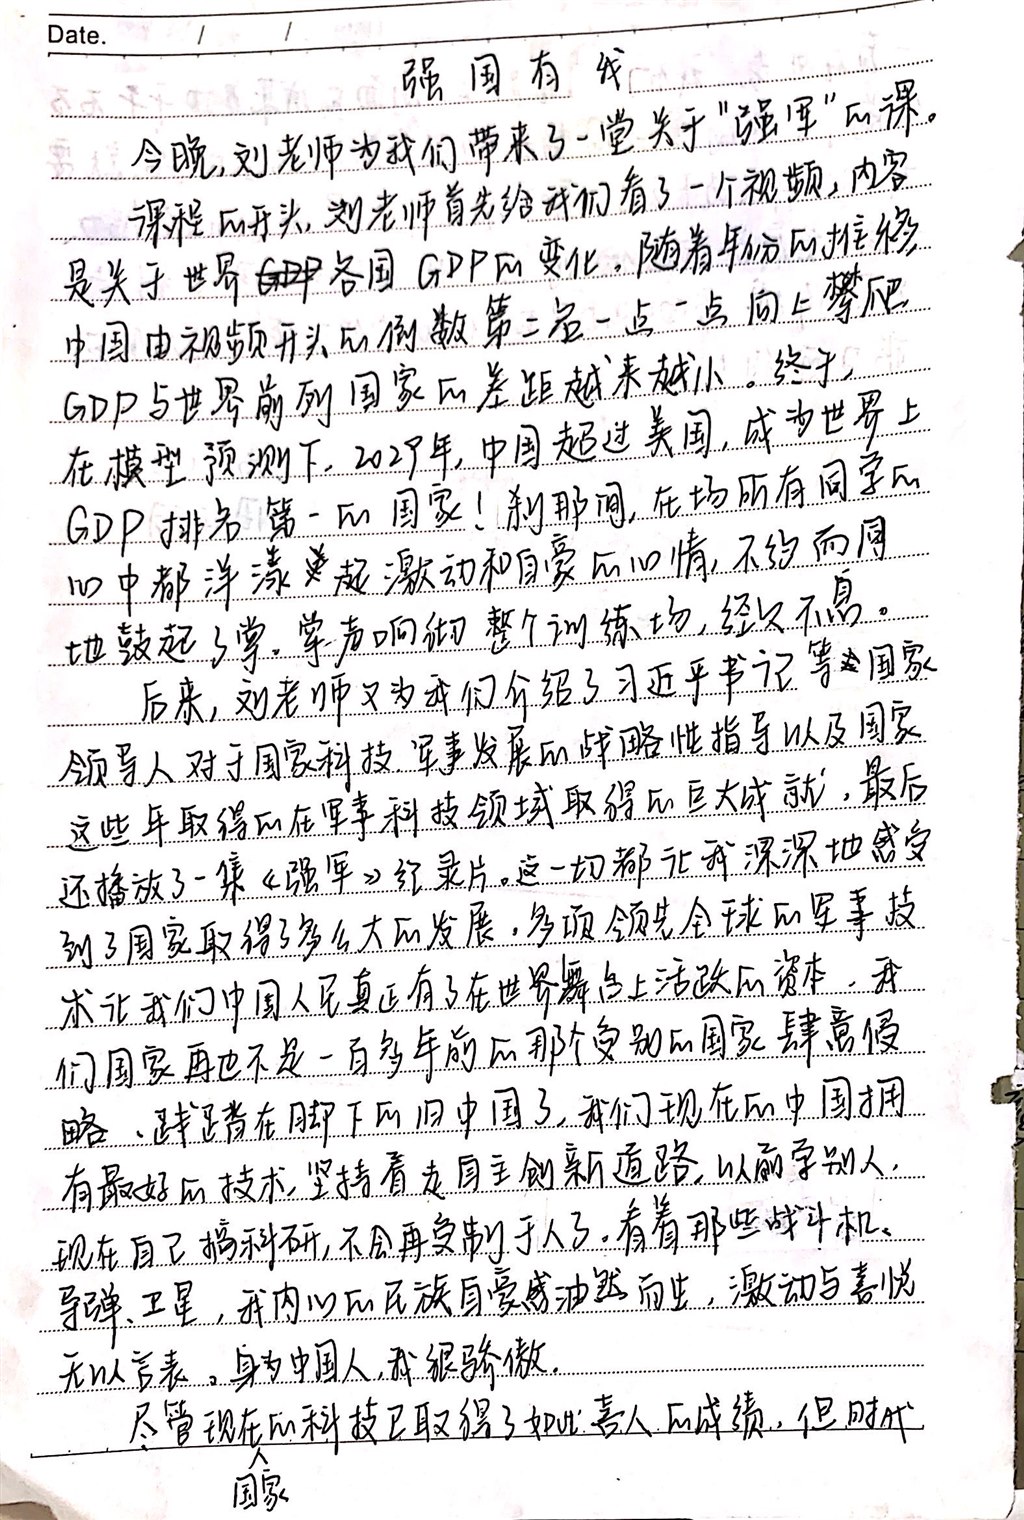 Date. / /
强国有我
今晚,刘老师为我们带来了一堂关于"强军"的课。
课程的开头,刘老师首先给我们看了一个视频,内容
是关于世界各国GDP的变化。随着年份的推移
中国由视频开头的倒数第二名一点一点向上攀爬
GDP与世界前列国家的差距越来越小。终于,
在模型预测下,2029年,中国超过美国,成为世界上
GDP排名第一的国家!刹那间,在场所有同学的
心中都洋漾起激动和自豪的心情,不约而同
地鼓起了掌。掌声响彻整个训练场,经久不息。
后来,刘老师又为我们介绍了习近平书记等国家
领导人对于国家科技、军事发展的战略性指导以及国家
这些年取得的在军事科技领域取得的巨大成就,最后
还播放了一集《强军》纪录片。这一切都让我深深地感受
到了国家取得了多么大的发展。多项领先全球的军事技
术让我们中国人民真正有了在世界舞台上活跃的资本,我
们国家再也不是一百多年前的那个受别的国家肆意侵
略、践踏在脚下的旧中国了,我们现在的中国拥
有最好的技术,坚持着走自主创新道路,以前学别人,
现在自己搞科研,不会再受制于人了。看着那些战斗机、
导弹、卫星,我内心的民族自豪感油然而生,激动与喜悦
无以言表。身为中国人,我很骄傲。
尽管现在的科技已取得了如此喜人的成绩,但时代
国家